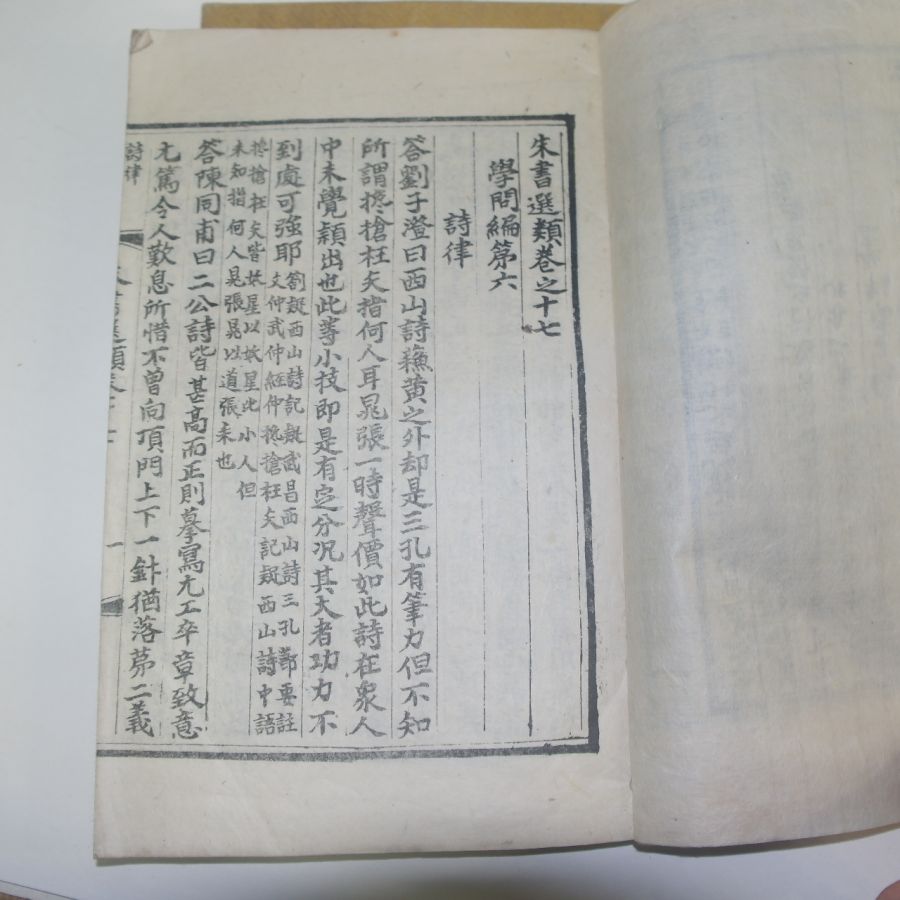 朱書選類卷之十七
學問編第六
詩律
答劉子澄曰西山詩蘓黄之外却是三孔有筆力但不知
所謂攙搶枉矢指何人耳晁張一時聲價如此詩在衆人
中未覺穎出也此等小技即是有定分况其大者功力不
到處可強耶
劄疑西山詩記疑武昌西山詩三孔鄭要註
文仲武仲經仲攙搶枉矢記疑西山詩中語
攙搶枉矢皆妖星以妖星比小人但
未知指何人晁張晁以道張耒也
答陳同甫曰二公詩皆甚高而正則摹寫尤工卒章致意
尤篤令人歎息所惜不曾向頂門上下一針猶落第二義
詩律
朱書選類卷十七
一